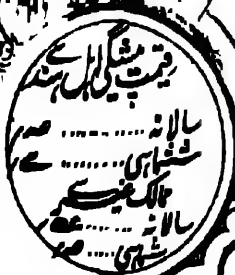 قیمت پیشگی اہل ہند سے
سالانہ ........
ششماہی ........
ممالک غیر سے
سالانہ ........
ششماہی .....